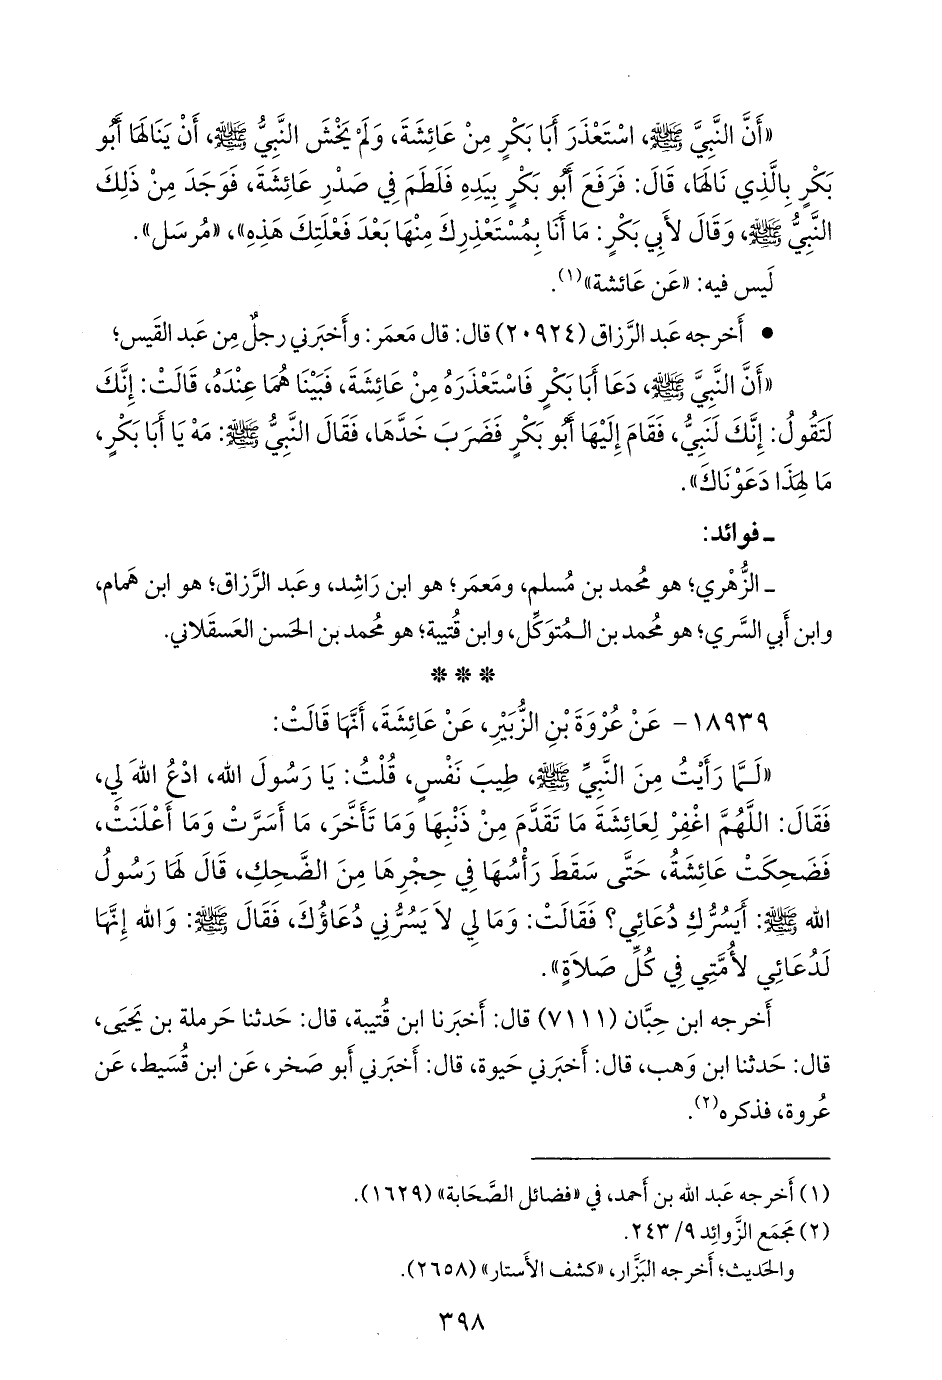 «أَنَّ النَّبِيَّ ﷺ، اسْتَعْذَرَ أَبَا بَكْرٍ مِنْ عَائِشَةَ، وَلَمْ يَخْشَ النَّبِيُّ ﷺ، أَنْ يَنَالَهَا أَبُو
بَكْرٍ بِالَّذِي نَالَهَا، قَالَ: فَرَفَعَ أَبُو بَكْرٍ بِيَدِهِ فَلَطَمَ فِي صَدْرِ عَائِشَةَ، فَوَجَدَ مِنْ ذَلِكَ
النَّبِيُّ ﷺ، وَقَالَ لأَبِي بَكْرٍ: مَا أَنَا بِمُسْتَعْذِرِكَ مِنْهَا بَعْدَ فَعْلَتِكَ هَذِهِ»، «مُرسَل».
لَيس فيه: «عَن عَائشة»(١).
• أَخرجه عَبد الرَّزاق (٢٠٩٢٤) قال: قال مَعمَر: وأَخبَرني رجلٌ مِن عَبد القَيس؛
«أَنَّ النَّبِيَّ ﷺ، دَعَا أَبَا بَكْرٍ فَاسْتَعْذَرَهُ مِنْ عَائِشَةَ، فَبَيْنَا هُمَا عِنْدَهُ، قَالَتْ: إِنَّكَ
لَتَقُولُ: إِنَّكَ لَنَبِيٌّ، فَقَامَ إِلَيْهَا أَبُو بَكْرٍ فَضَرَبَ خَدَّهَا، فَقَالَ النَّبِيُّ ﷺ: مَهْ يَا أَبَا بَكْرٍ،
مَا لِهَذَا دَعَوْنَاكَ».
ـ فوائد:
ـ الزُّهْري؛ هو مُحمد بن مُسلم، ومَعمَر؛ هو ابن رَاشِد، وعَبد الرَّزاق؛ هو ابن هَمام،
وابن أَبي السَّري؛ هو مُحمد بن الـمُتوَكِّل، وابن قُتيبة؛ هو مُحمد بن الحَسن العَسقَلاني.
* * *
١٨٩٣٩- عَنْ عُرْوَةَ بْنِ الزُّبَيْرِ، عَنْ عَائِشَةَ، أَنَّهَا قَالَتْ:
«لَـمَّا رَأَيْتُ مِنَ النَّبِيِّ ﷺ، طِيبَ نَفْسٍ، قُلْتُ: يَا رَسُولَ الله، ادْعُ اللهَ لِي،
فَقَالَ: اللَّهُمَّ اغْفِرْ لِعَائِشَةَ مَا تَقَدَّمَ مِنْ ذَنْبِهَا وَمَا تَأَخَّرَ، مَا أَسَرَّتْ وَمَا أَعْلَنَتْ،
فَضَحِكَتْ عَائِشَةُ، حَتَّى سَقَطَ رَأْسُهَا فِي حِجْرِهَا مِنَ الضَّحِكِ، قَالَ لَهَا رَسُولُ
الله ﷺ: أَيَسُرُّكِ دُعَائِي؟ فَقَالَتْ: وَمَا لِي لاَ يَسُرُّنِي دُعَاؤُكَ، فَقَالَ ﷺ: وَالله إِنَّهَا
لَدُعَائِي لأُمَّتِي فِي كُلِّ صَلاَةٍ».
أَخرجه ابن حِبَّان (٧١١١) قال: أَخبَرنا ابن قُتيبة، قال: حَدثنا حَرملة بن يَحيَى،
قال: حَدثنا ابن وَهب، قال: أَخبَرني حَيوة، قال: أَخبَرني أَبو صَخر، عَن ابن قُسَيط، عَن
عُروة، فذكره(٢).
(١) أَخرجه عَبد الله بن أَحمد، في «فضائل الصَّحَابة» (١٦٢٩).
(٢) مَجمَع الزَّوائِد ٩/ ٢٤٣.
والحَديث؛ أَخرجه البَزَّار، «كشف الأَستار» (٢٦٥٨).
٣٩٨